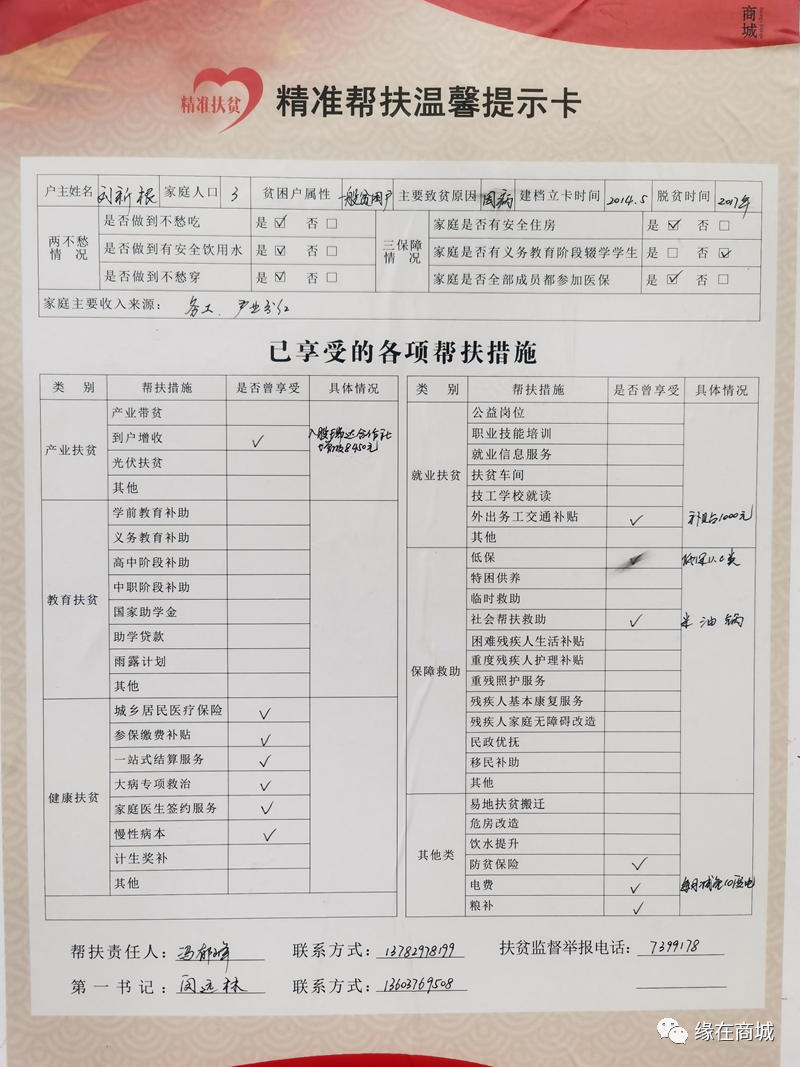 商城
精准扶贫 精准帮扶温馨提示卡
户主姓名 刘新根 家庭人口 3 贫困户属性 一般贫困户 主要致贫原因 因病 建档立卡时间 2014.5 脱贫时间 2017年
两不愁情况 是否做到不愁吃 是 ☑ 否 □ 三保障情况 家庭是否有安全住房 是 ☑ 否 □
是否做到有安全饮用水 是 ☑ 否 □ 家庭是否有义务教育阶段辍学学生 是 □ 否 ☑
是否做到不愁穿 是 ☑ 否 □ 家庭是否全部成员都参加医保 是 ☑ 否 □
家庭主要收入来源： 务工、产业分红
已享受的各项帮扶措施
类 别 帮扶措施 是否曾享受 具体情况
产业扶贫
产业带贫
到户增收 ✓ 入股瑞达合作社
8450元
光伏扶贫
其他
教育扶贫
学前教育补助
义务教育补助
高中阶段补助
中职阶段补助
国家助学金
助学贷款
雨露计划
其他
健康扶贫
城乡居民医疗保险 ✓
参保缴费补贴 ✓
一站式结算服务 ✓
大病专项救治 ✓
家庭医生签约服务 ✓
慢性病本 ✓
计生奖补
其他
类 别 帮扶措施 是否曾享受 具体情况
就业扶贫
公益岗位
职业技能培训
就业信息服务
扶贫车间
技工学校就读
外出务工交通补贴 ✓ 补贴1000元
其他
保障救助
低保 ✓ 低保
特困供养
临时救助
社会帮扶救助 ✓ 米 油 锅
困难残疾人生活补贴
重度残疾人护理补贴
重残照护服务
残疾人基本康复服务
残疾人家庭无障碍改造
民政优抚
移民补助
其他
其他类
易地扶贫搬迁
危房改造
饮水提升
防贫保险 ✓
电费 ✓ 每月减免10度电
粮补 ✓
帮扶责任人：冯郁峰 联系方式：13782978199 扶贫监督举报电话：7399178
第一书记：闵远林 联系方式：13603769508
缘在商城